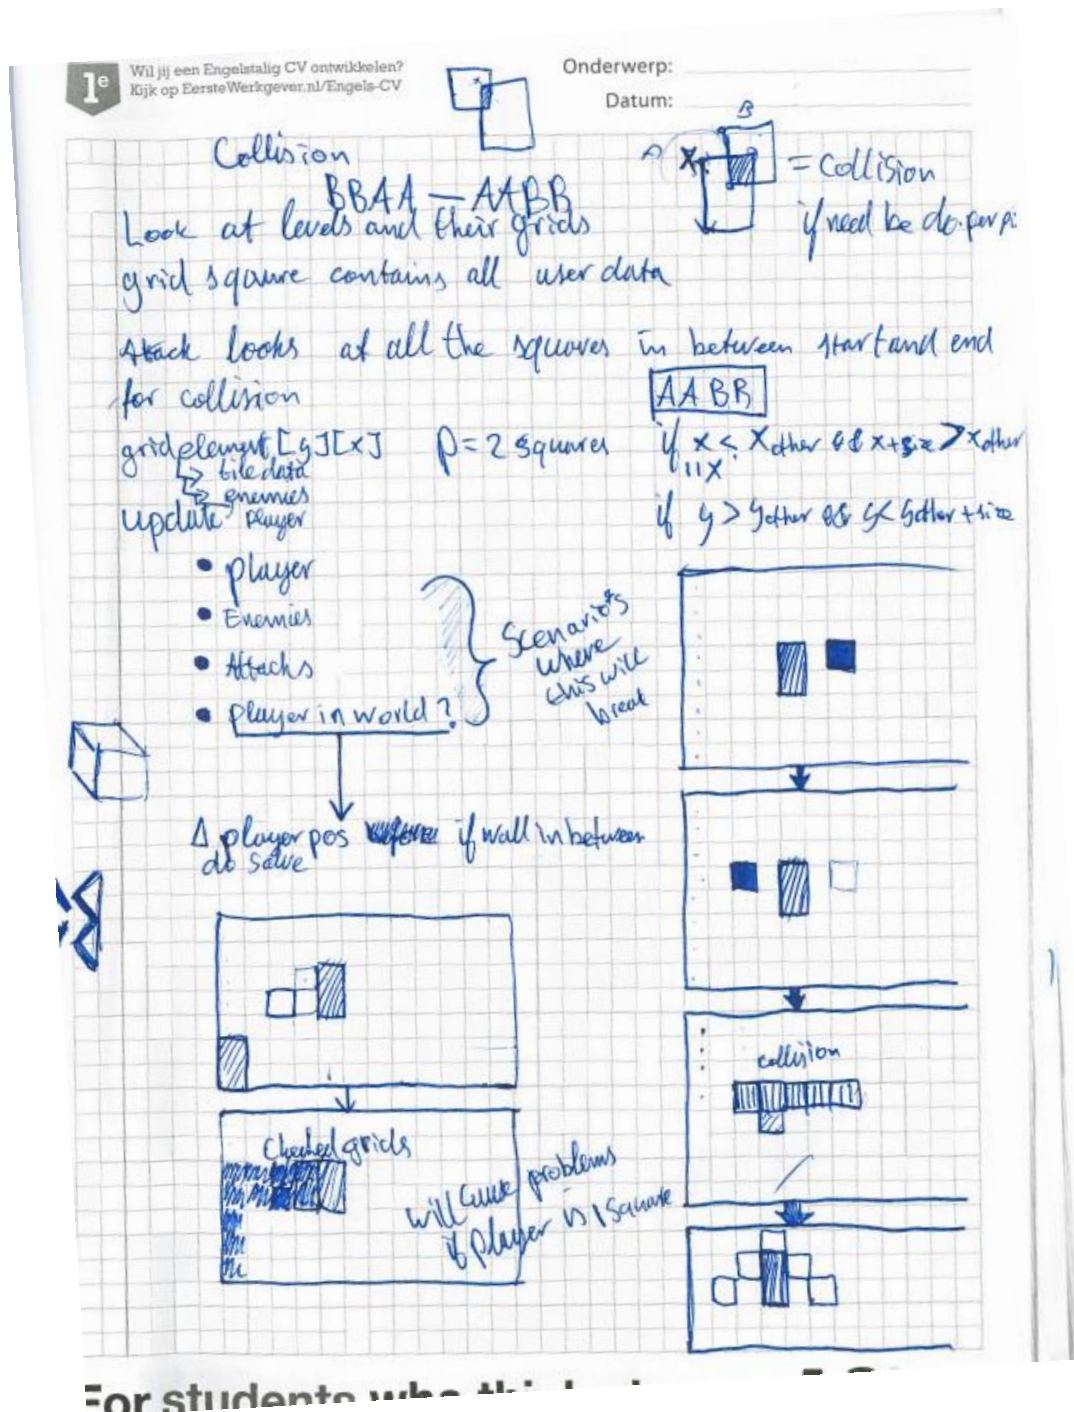 1e
Wil jij een Engelstalig CV ontwikkelen?
Kijk op EersteWerkgever.nl/Engels-CV
Onderwerp:
Datum:
B
A
X
= Collision
if need be do per pi
Collision
BBAA — AABB
Look at levels and their grids
grid sqaure contains all user data
Attack looks at all the squares in between start and end
for collision
AABB
gridelement[y][x]
tiledata
enemies
player
P = 2 squares
if x < xother && x+size > xother
|| x
if y > yother && y< yother + size
update
• player
• Enemies
• Attacks
• player in world?
Scenario's
where
this will
break
Δ player pos if wall in between
do solve
collision
Checked grids
will cause problems
if player is 1 square
For students who